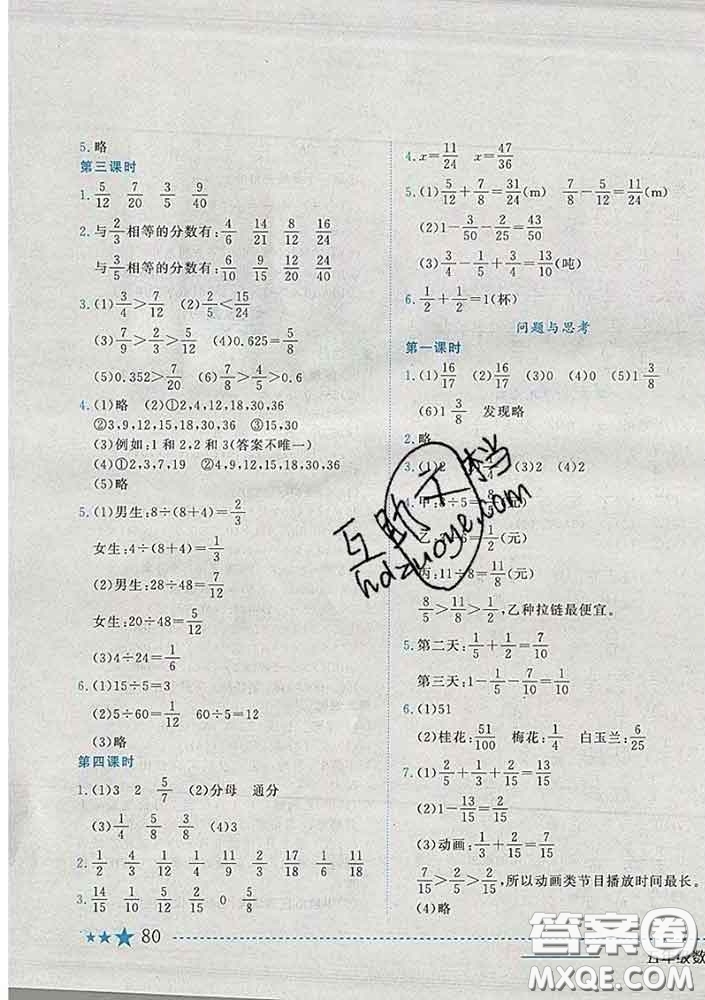 5. 略
第三课时
1. 5/12 7/20 3/5 9/40
2. 与2/3相等的分数有: 4/6 14/21 8/12 16/24
与3/5相等的分数有: 6/10 9/15 18/30 12/20
3. (1) 3/4>7/12 (2) 2/5<15/24
(3) 7/9>2/3>1/2 (4) 0.625=5/8
(5) 0.352>7/20 (6) 5/6>7/9>0.6
4. (1)略 (2)①2,4,12,18,30,36
②3,9,12,15,18,30,36 ③15,30
(3)例如:1和2,2和3(答案不唯一)
(4)①2,3,7,19 ②4,9,12,15,18,30,36
(5)略
5. (1)男生:8÷(8+4)=2/3
女生:4÷(8+4)=1/3
(2)男生:28÷48=7/12
女生:20÷48=5/12
(3)4÷24=1/6
6. (1)15÷5=3
(2)5÷60=1/12 60÷5=12
(3)略
第四课时
1. (1)3 2 5/7 (2)分母 通分
(3) 1/4 5/8 3/8 (4)3
2. 1/2 4/3 1/12 11/9 2/9 17/18 1/6 11/18
3. 14/15 1/10 5/12 2/15 0 5/8
80
4. x=11/24 x=47/36
5. (1) 5/12+7/8=31/24(m) 7/8-5/12=11/24(m)
(2) 1-3/50-2/25=43/50
(3) 3/4-1/5+3/4=13/10(吨)
6. 1/2+1/2=1(杯)
问题与思考
第一课时
1. (1)16/17 (2)16/17 (3)0 (4)0 (5)1 3/8
(6)1 3/8 发现略
2. 略
3. (1)2 (3)2 (4)2
4. 甲:8÷5=8/5(元)
乙 6=1/2(元)
丙:11÷8=11/8(元)
8/5>11/8>1/2,乙种拉链最便宜。
5. 第二天:1/5+1/2=7/10
第三天:1-1/5-7/10=1/10
6. (1)51
(2)桂花:51/100 梅花:1/4 白玉兰:6/25
7. (1) 2/15+1/3+2/5=13/15
(2) 1-13/15=2/15
(3)动画:1/3+2/15=7/15
7/15>2/5>2/15,所以动画类节目播放时间最长。
(4)略
互助文档
hdzuoye.com
答案圈
MXQE.COM
五年级数